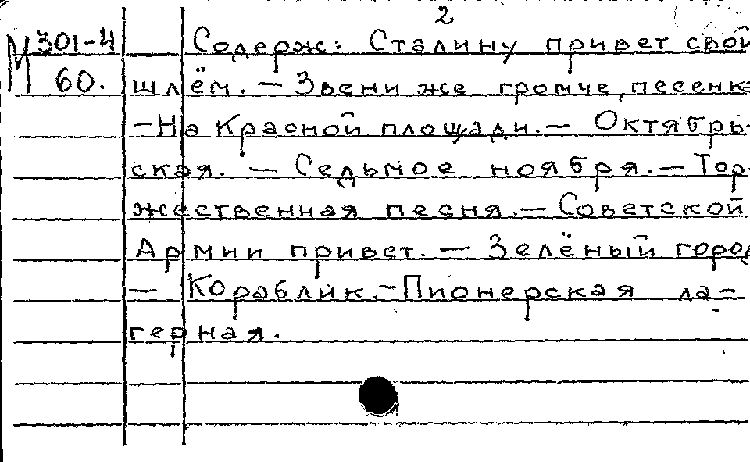 2
М 301-4 Содерж: Сталину привет свой
60. шлём. – Звени же громче, песенк
– На Красной площади. – Октябрь-
ская. – Седьмое ноября. – Тор-
жественная песня. – Советской
Армии привет. – Зелёный город
– Кораблик. – Пионерская ла-
герная.